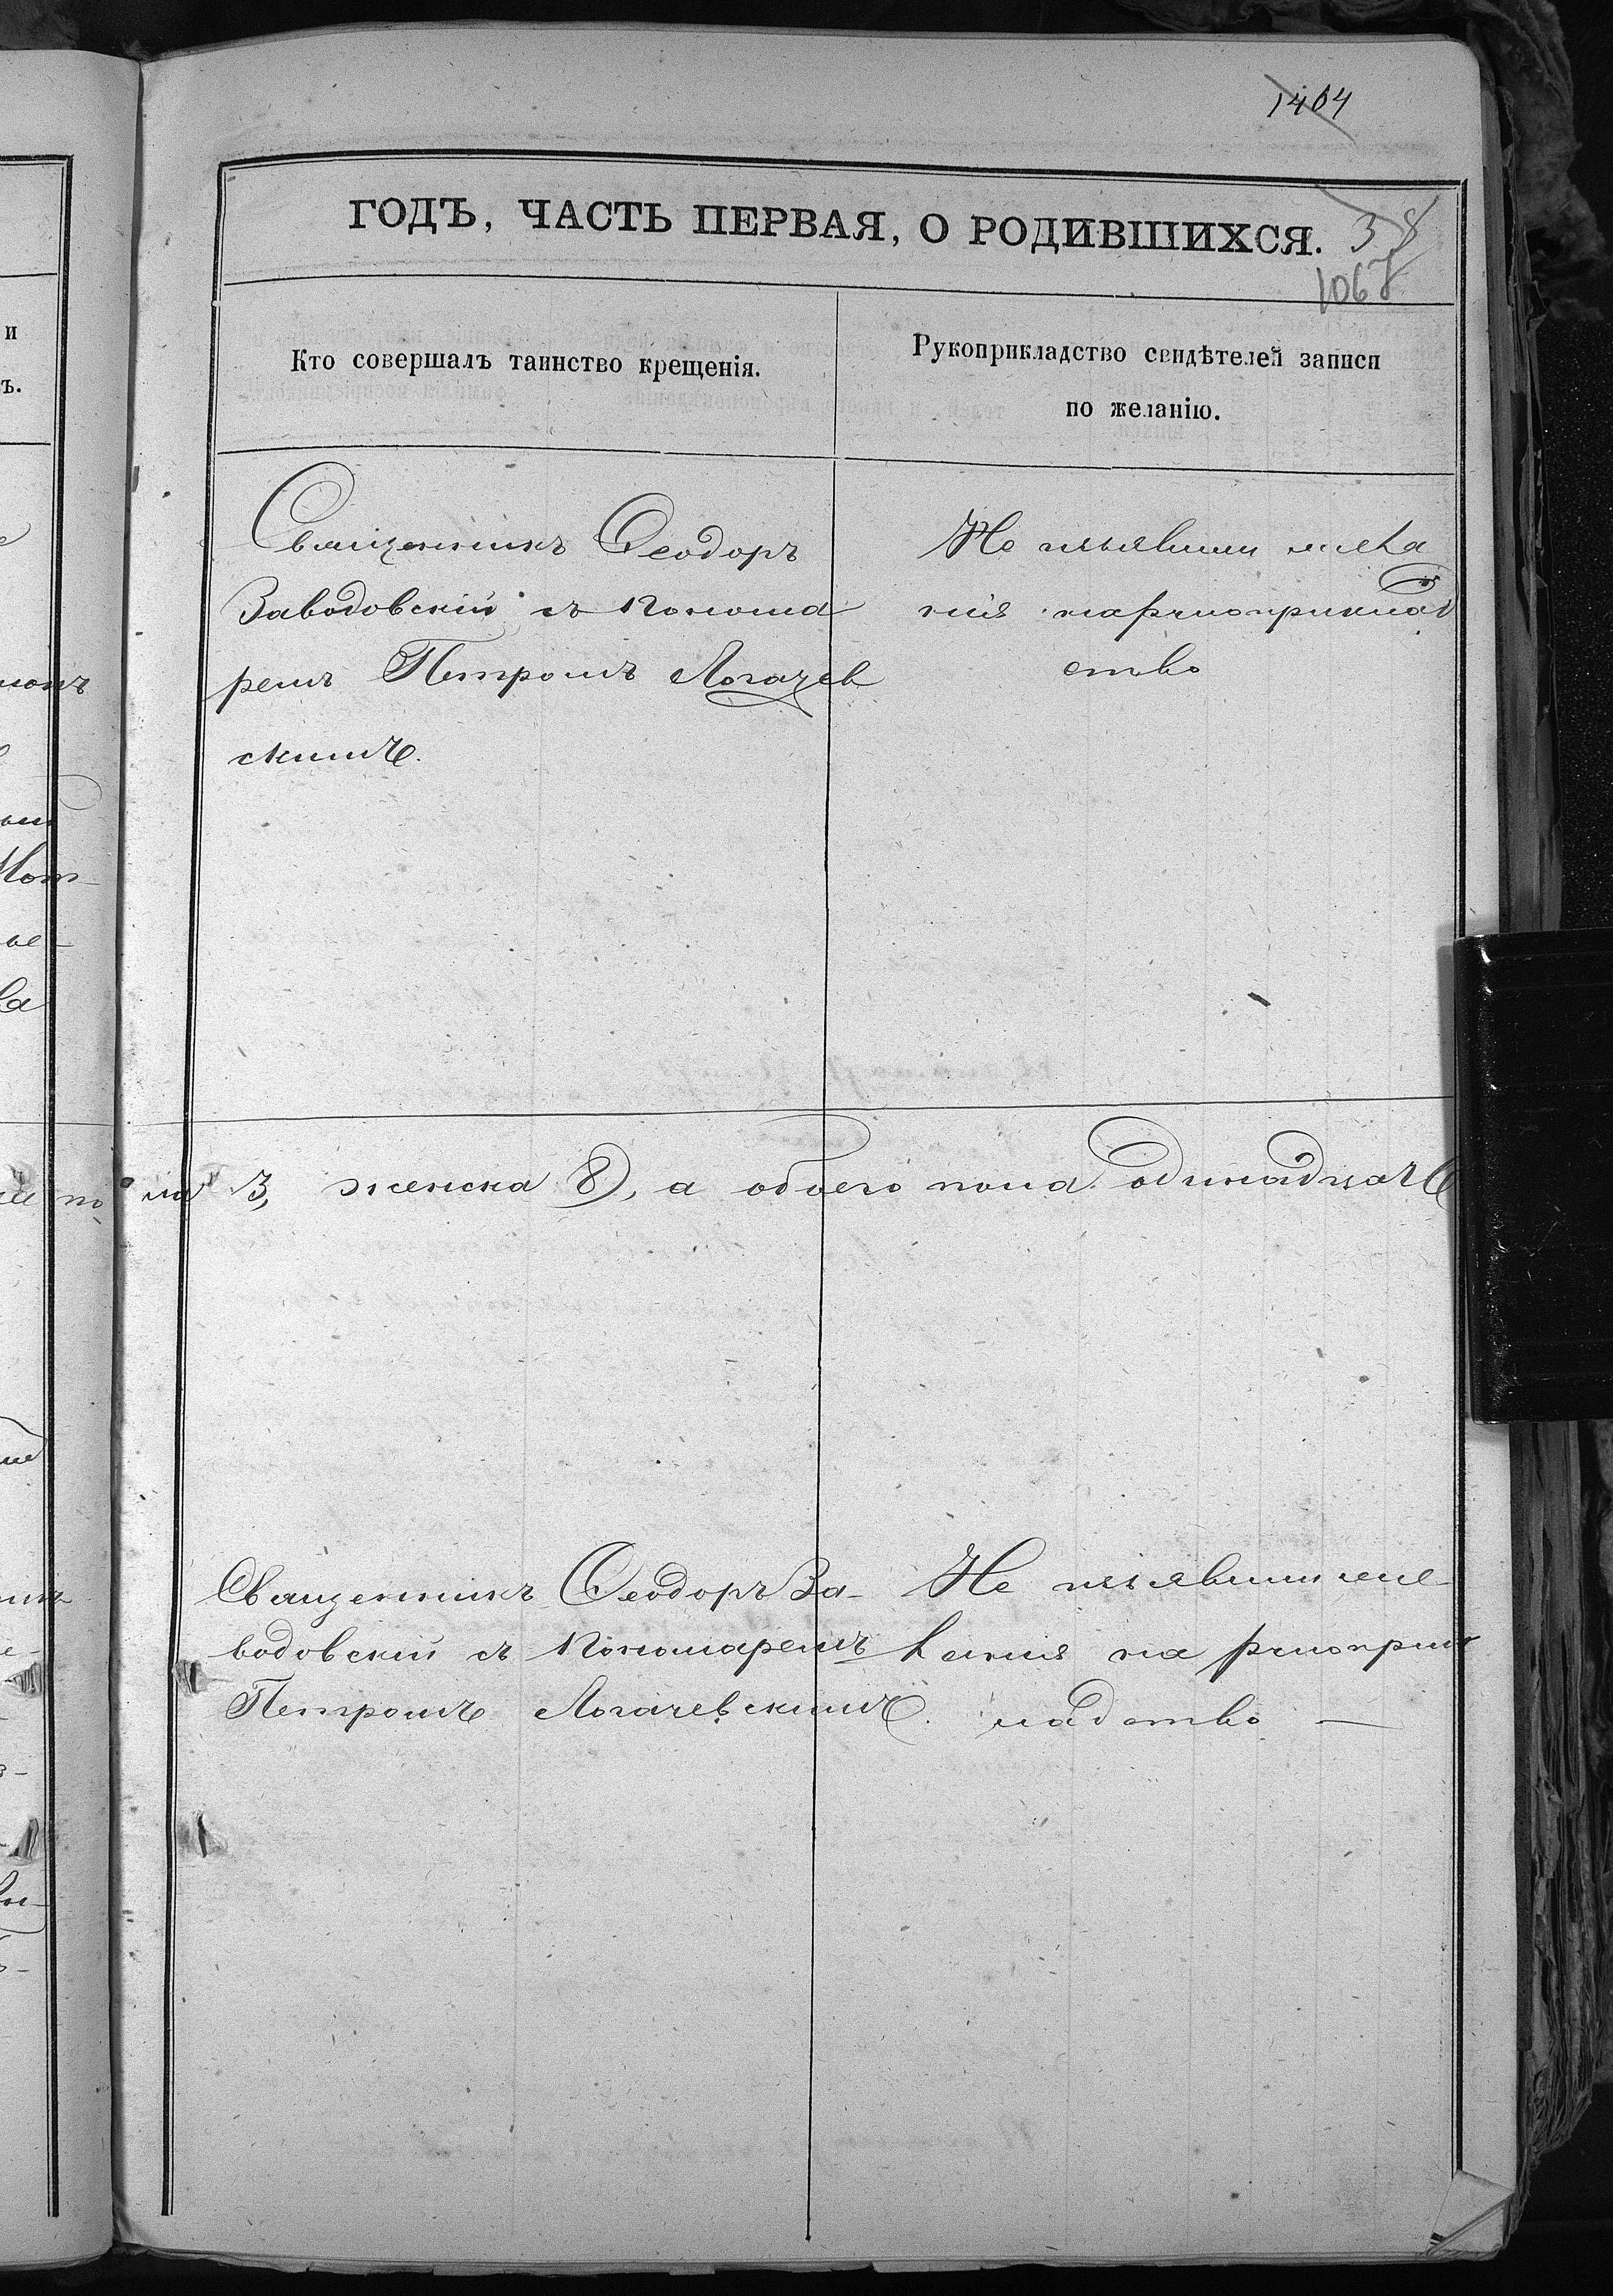 1404
ГОДЪ, ЧАСТЬ ПЕРВАЯ, О РОДИВШИХСЯ. 38
1067
Кто совершалъ таинство крещенія.
Рукоприкладство свидѣтелей записи
по желанію.
Священникъ Ѳеодоръ
Заводовскій съ Понома
ремъ Петромъ Логачев
скимъ.
Не изъявили жела
нія на
ство
ла 3, женска 8, а обоего пола одинадцать
Священникъ Ѳеодоръ За-
водовскій съ Пономаремъ
Петромъ Логачевскимъ.
Не изъявили же-
ланія на
ладство —
и
ъ.